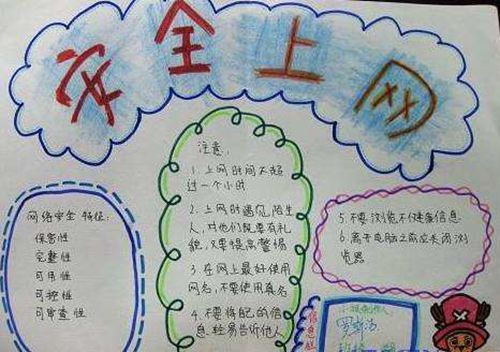 安全上网
网络安全 特征:
保密性
完整性
可用性
可控性
可审查性
注意:
1. 上网时间不超
过一个小时
2. 上网时遇见陌生
人,对他们既要有礼
貌,又要提高警惕
3. 在网上最好使用
网名,不要使用真名
4. 不要将自己的信
息轻易告诉他人
5. 不要浏览不健康信息
6. 离开电脑之前应关闭浏
览器